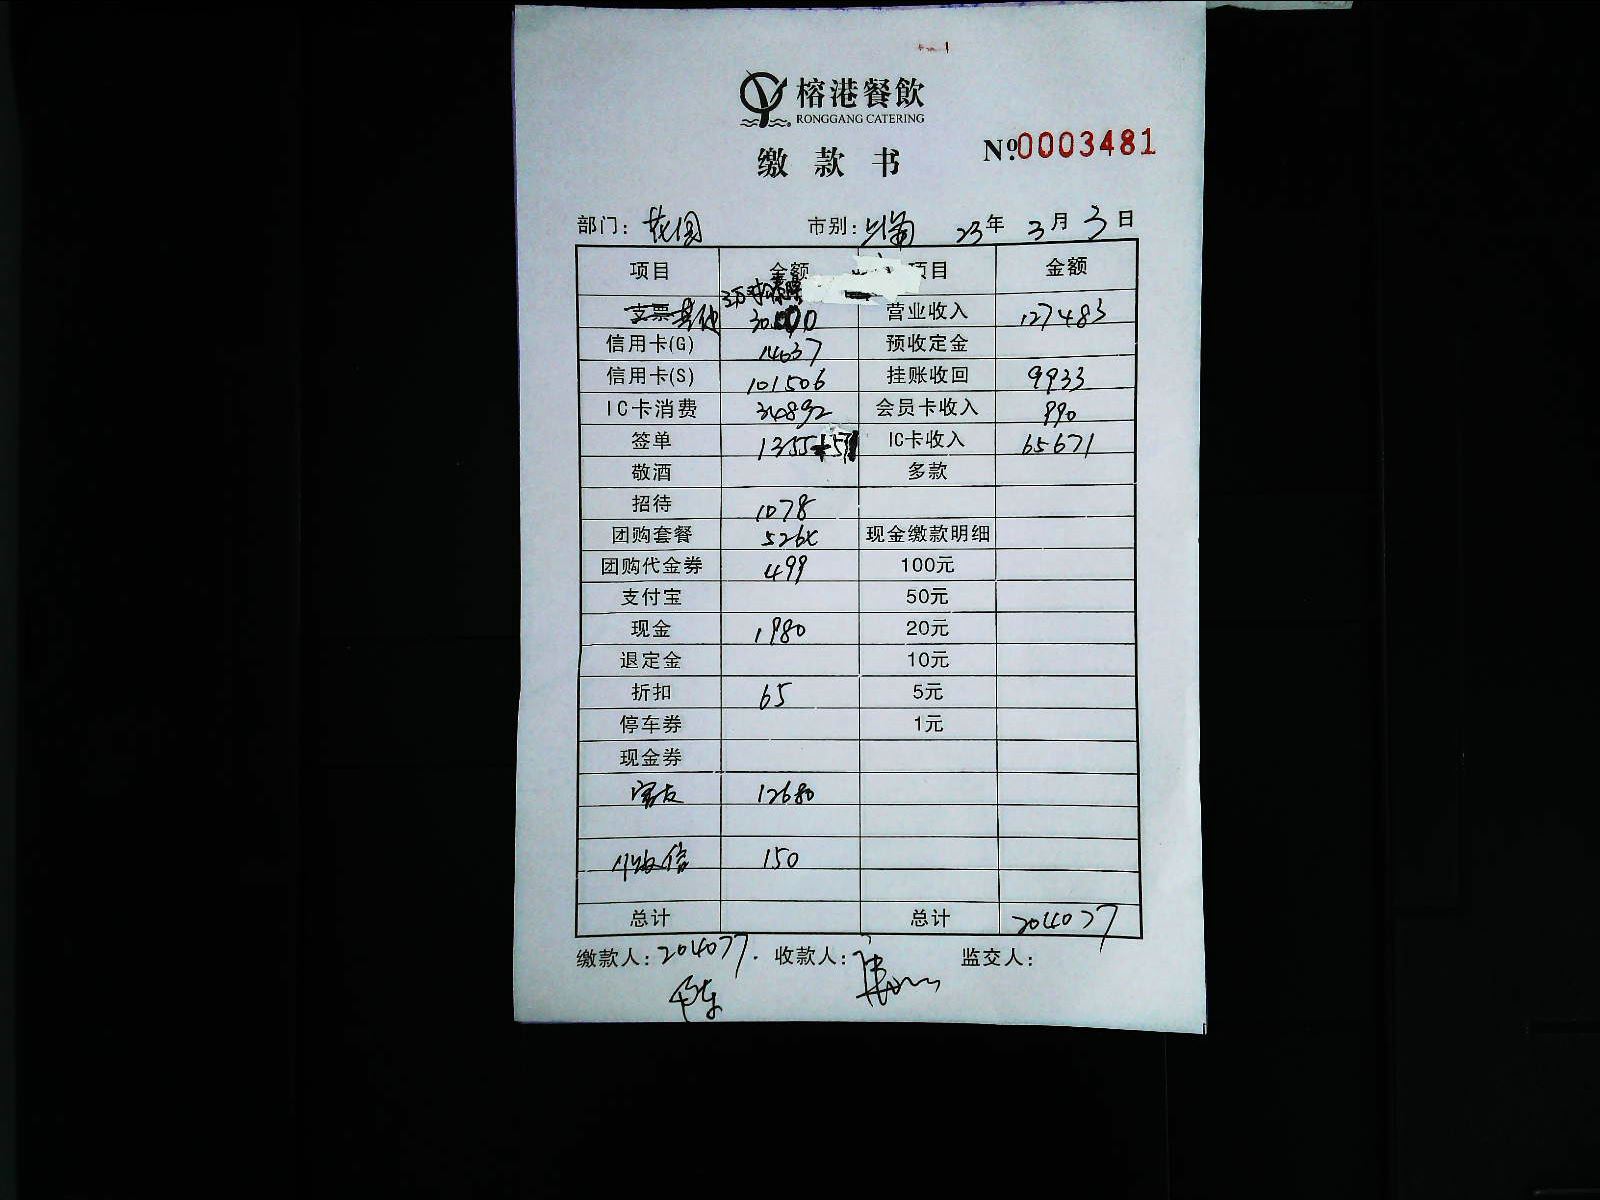 榕港餐飲
RONGGANG CATERING
缴款书 №0003481
部门: 花园 市别: 23年 3月 3日
项目 金额 项目 金额
支票 其他 30000 营业收入 127483
信用卡(G) 14637 预收定金
信用卡(S) 101506 挂账收回 9933
IC卡消费 34892 会员卡收入 990
签单 1355 IC卡收入 65671
敬酒 多款
招待 1078
团购套餐 现金缴款明细
团购代金券 499 100元
支付宝 50元
现金 1980 20元
退定金 10元
折扣 65 5元
停车券 1元
现金券
12680
150
总计 总计 204077
缴款人: 204077. 收款人: 监交人: